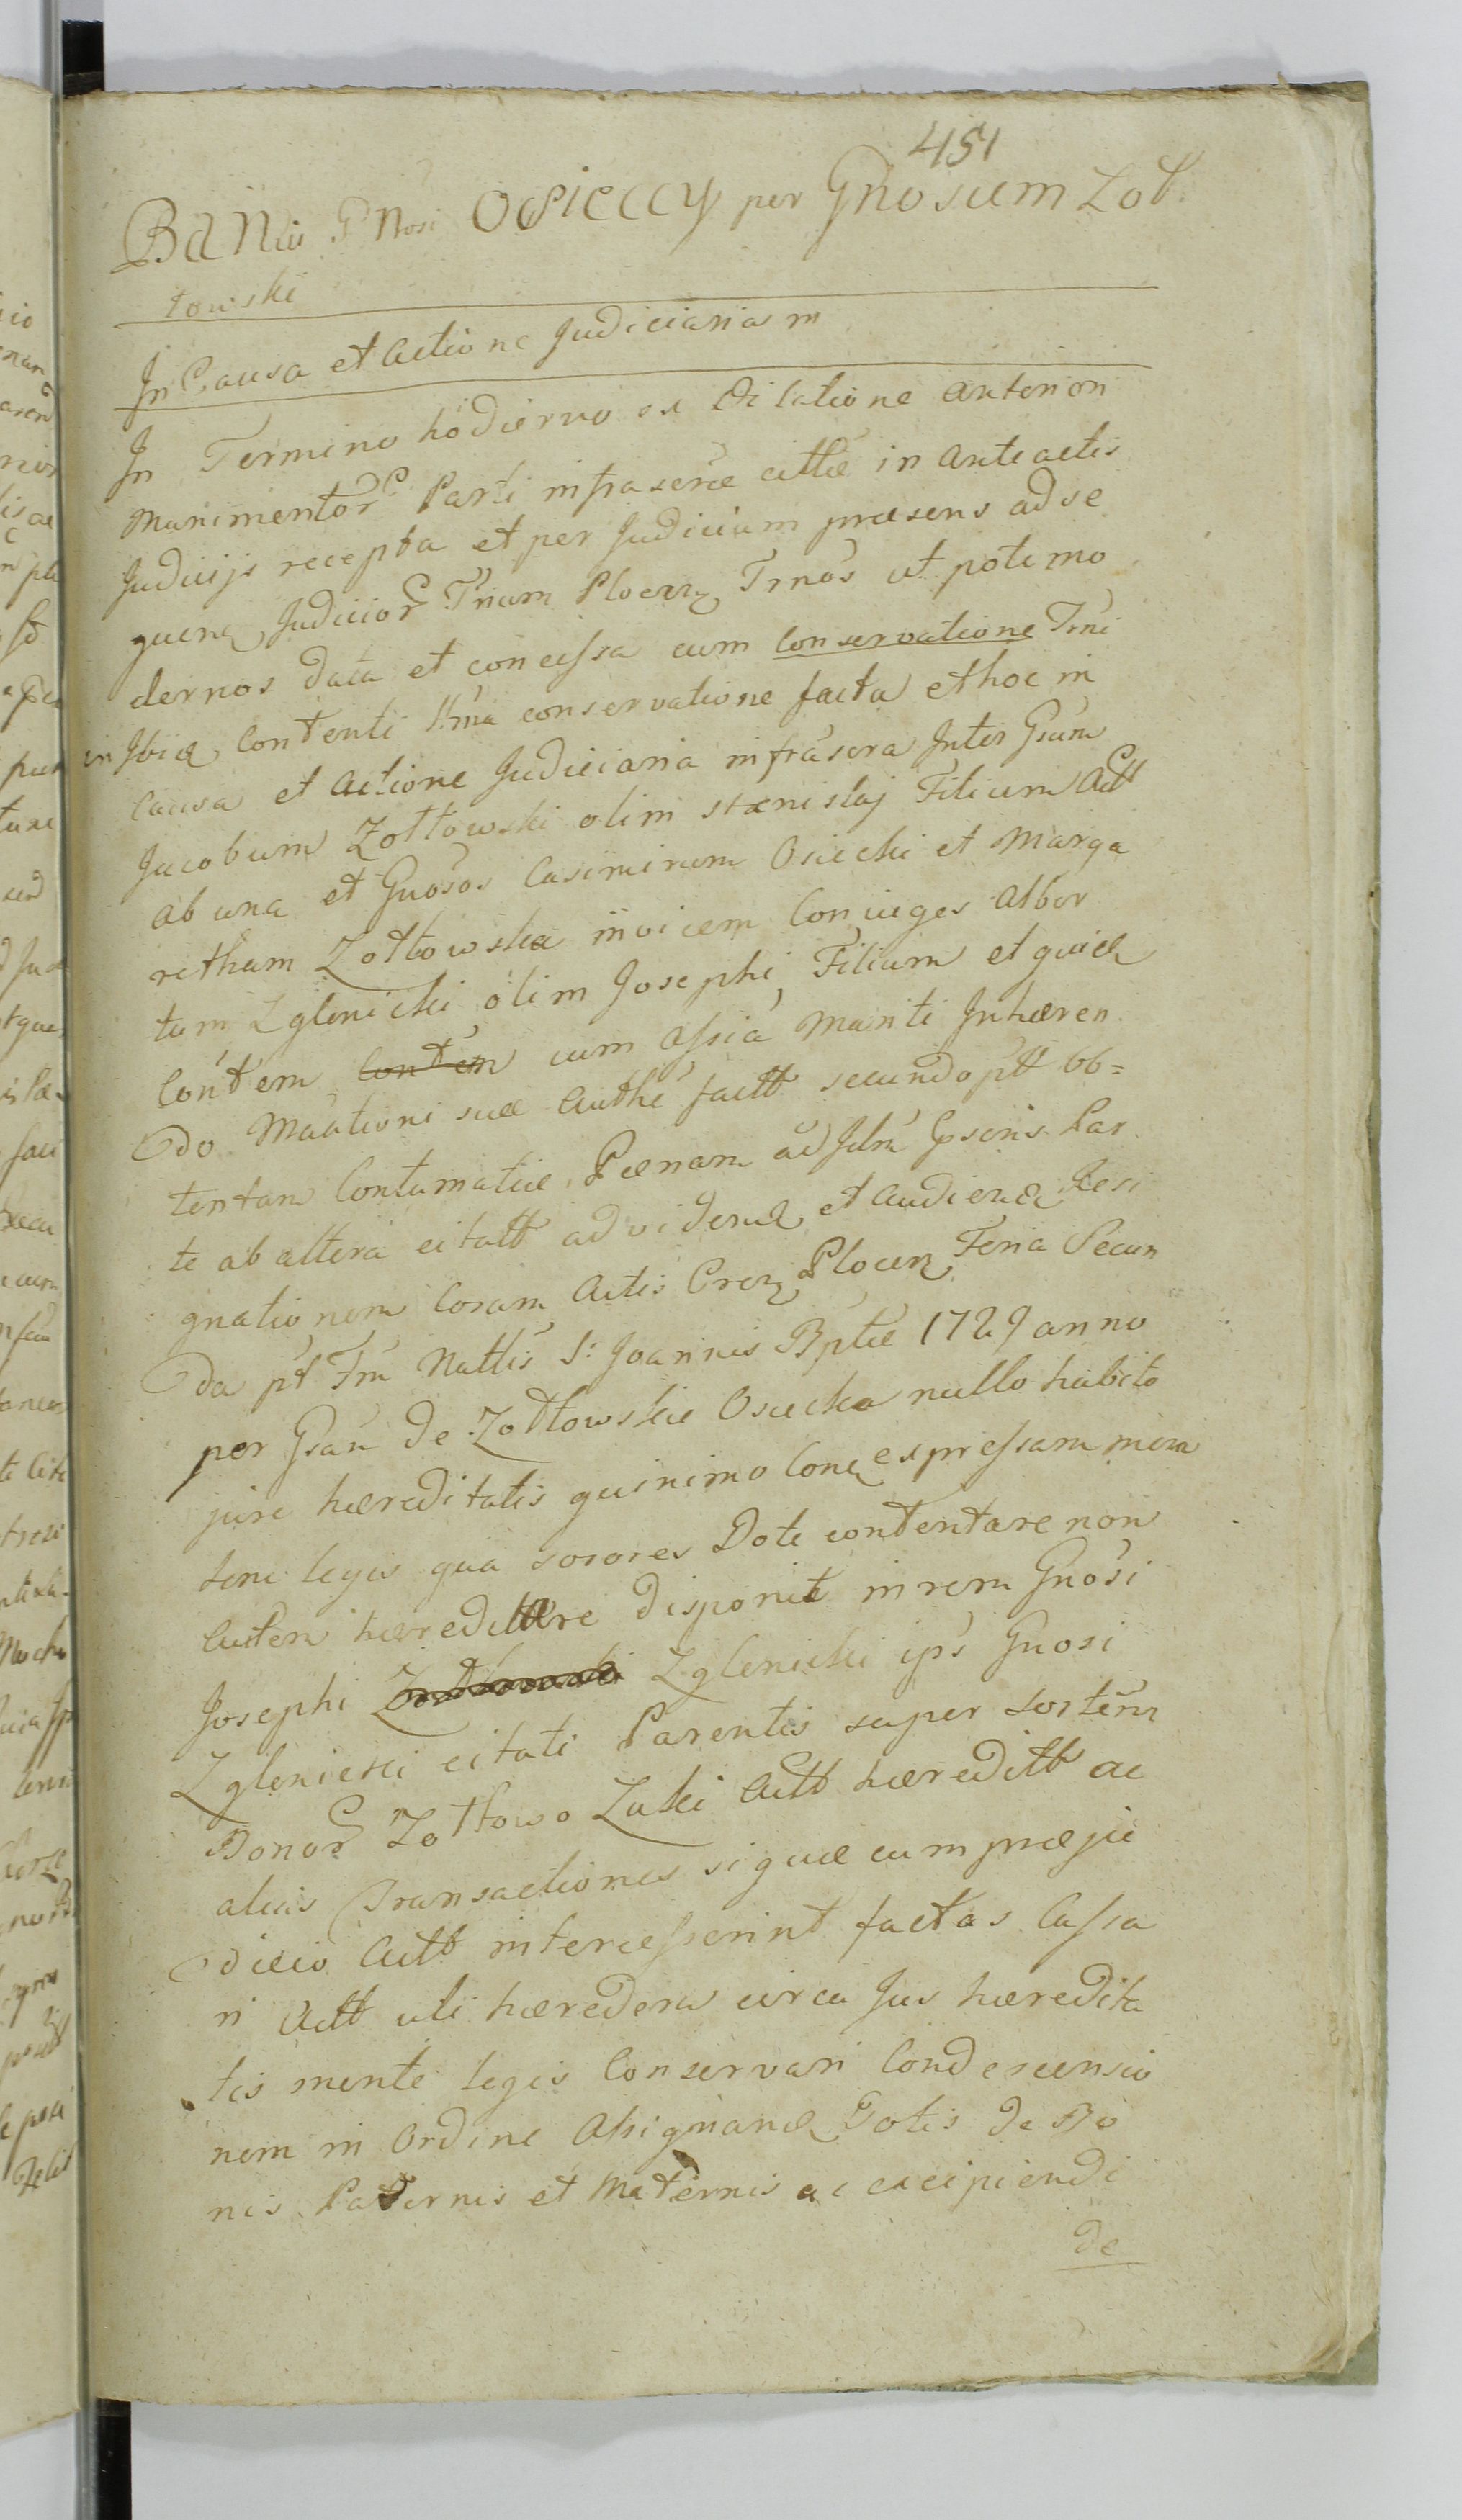 451
BaNtus GNosi OSIECCY per GNosum Zoł
towski
In Causa et Actione Judiciariam
In Termino hodierno ex Dilatione anteriori
Munimentor Parti infrascrae cittae in anteactis
Judicijs recepta et per Judicium praesens ad se
quena Judicior Trium Plocen Trnos ut pote mo
dernos data et concessa cum Conservatione Trni
in Ibid Contenti Ilma conservatione facta et hoc in
Causa et Actione Judiciaria infrascra Inter Gsum
Jacobum Zołtowski olim Stanislaj Filium Actt
ab una et Gnosos Casimirum Osiecki et Marga
retham Zołtowska invicem Conjuges Alber
tum Zglenicki olim Josephi Filium et quid
Contem Contem cum Assia Mariti Inhaeren
do Maationi suae Authe factt secundo ptt ob=
tentam Contumatiae Paenam ad Idm Gsens Par
te ab altera citatt ad vidend et Audiend Resi
gnationem Coram Actis Cren Plocen Feria Secun
da pt Fm Nattis S: Joannis Bptae 1729 anno
per Gsam de Zołtowskie Osiecka nullo habito
jure haereditatis quinimo Cona expressam men
tem legis qua sorores Dote contentare non
Autem haereditare disponit in rem Gnosi
Josephi Zglenicki ips Gnosi
Zglenicki citati Parentis super sortem
Bonor Zołtowo Zuki Actt haereditt ac
alias Transactiones si quae cum praeju
dicio Actt intercesserint factas Cassa
ri Actt uti haeredem circa Jus haeredita
tis mente legis Conservari Condescensio
nem in Ordine Assignand Dotis de Bo
nis Paternis et Maternis ac excipiendi
de